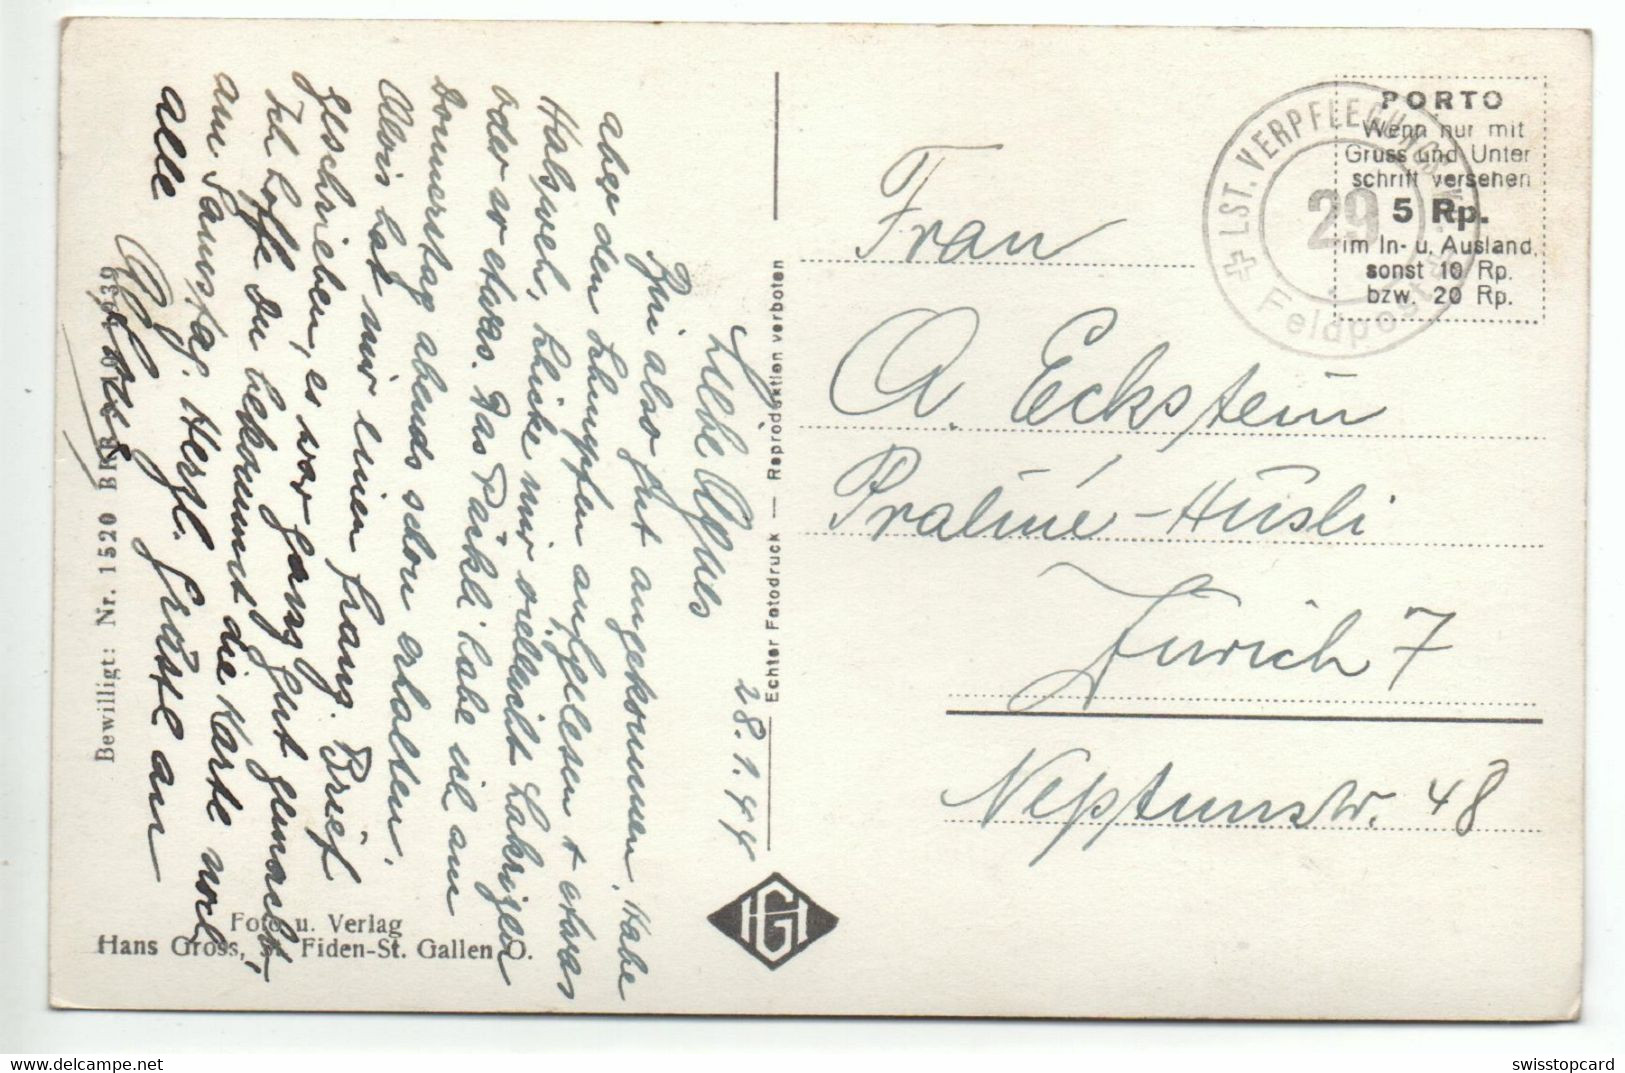 28.1.44
Liebe Agnes
Bin also gut angekommen, habe
aber den Schnupfen aufgelesen + etwas
Halsweh, schicke mir vielleicht Lakrizen
oder so etwas. Das Päckli habe ich am
Donnerstag abends schon erhalten.
Alois hat mir einen
geschrieben, es war ganz gut gemacht.
Ich hoffe du bekommst die Karte noch
am Samstag. Herzl. Grüsse an
alle
LST. VERPFLEGUNGS
29
Feldpost
PORTO
Wenn nur mit
Gruss und Unter
schrift versehen
5 Rp.
im In- u. Ausland,
sonst 10 Rp.
bzw. 20 Rp.
Frau
A. Eckstein
Praliné-Hüsli
Zürich 7
Neptunstr. 48
Echter Fotodruck — Reproduktion verboten
HG
Bewilligt: Nr. 1520 BRB 1939
Foto u. Verlag
Hans Gross, St. Fiden-St. Gallen O.
www.delcampe.net
swisstopcard